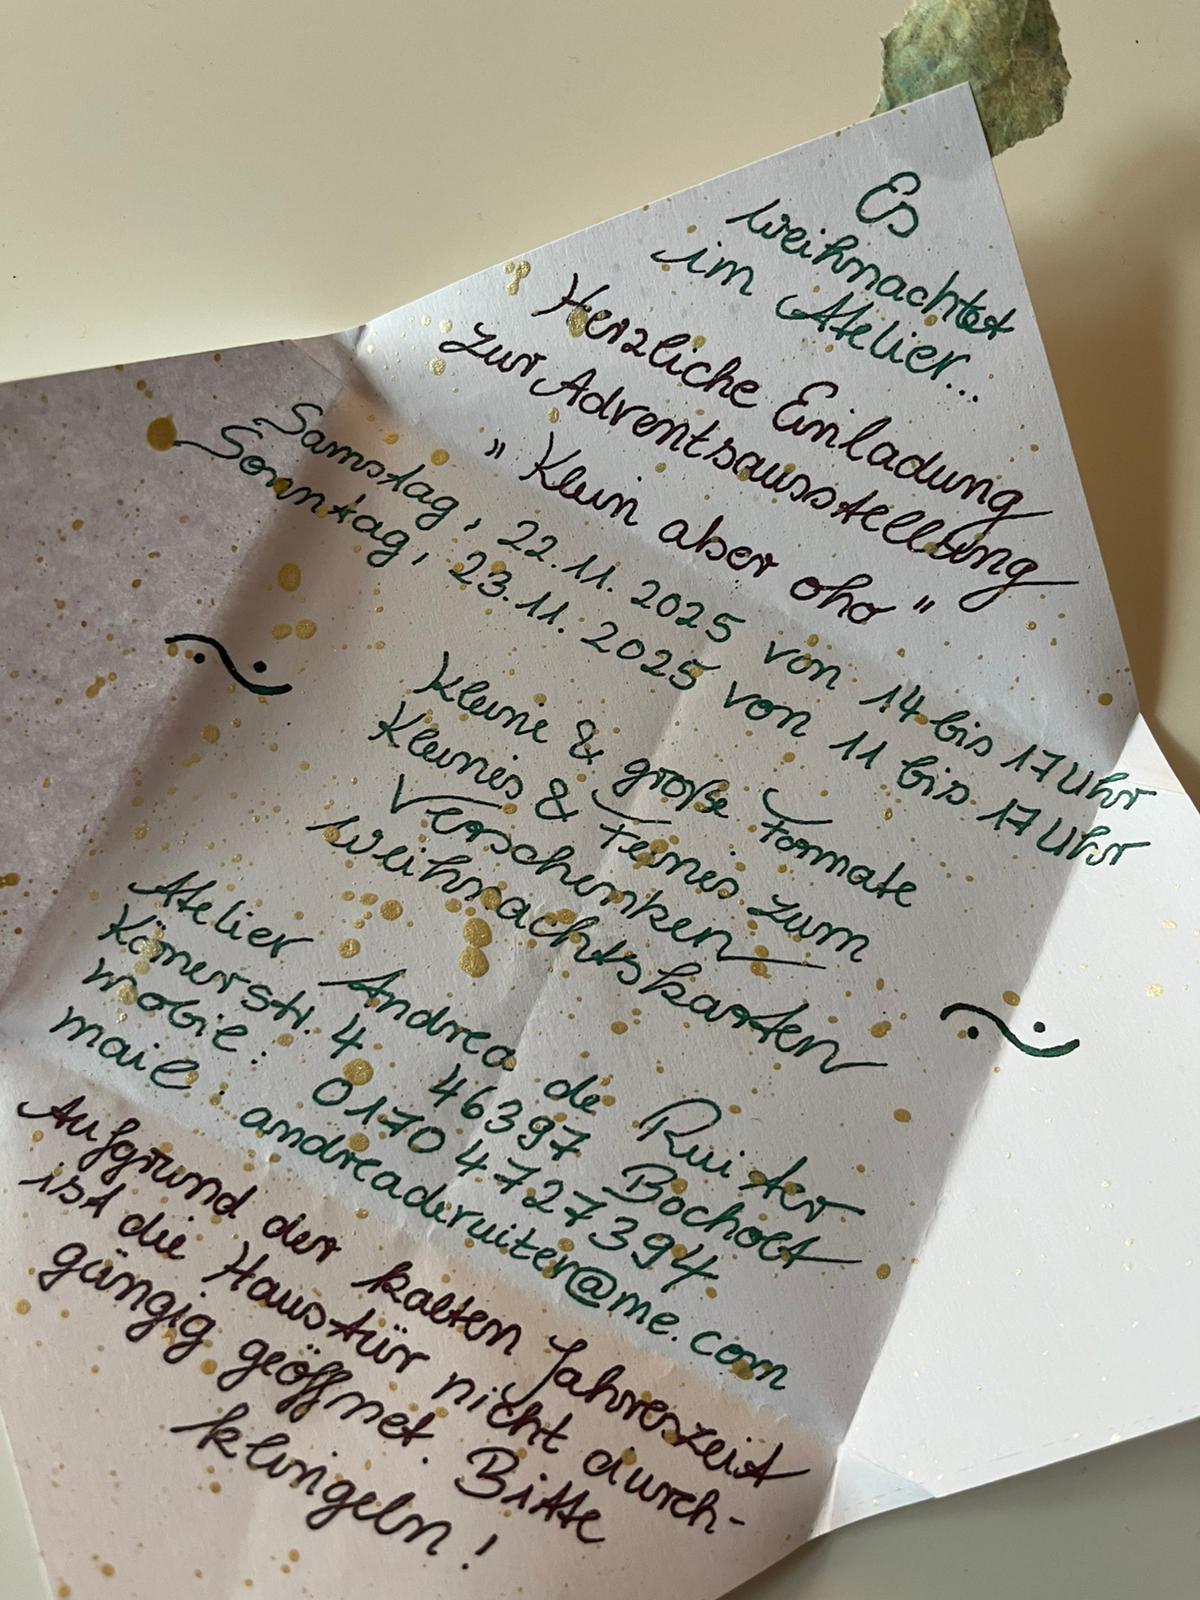 Es
weihnachtet
im Atelier...
Herzliche Einladung
zur Adventsausstellung
"Klein aber oho"
Samstag, 22.11.2025 von 14 bis 17 Uhr
Sonntag, 23.11.2025 von 11 bis 17 Uhr
Kleine & große Formate
Kleines & Feines zum
Verschenken
Weihnachtskarten
Atelier Andrea de Ruiter
Körnerstr. 4 46397 Bocholt
mobil: 0170 4727394
mail: andreaderuiter@me.com
Aufgrund der kalten Jahreszeit
ist die Haustür nicht durch-
gängig geöffnet. Bitte
klingeln!